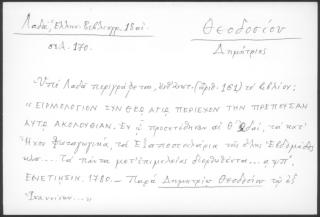 Λαδᾶ, Ἑλλην. Βιβλιογρ. 18 αἰ.
σελ. 170.
Θεοδοσίου
Δημήτριος
Ὑπὸ Λαδᾶ περιγράφεται, (ἀριθ. 161) τὸ βιβλίον:
"ΕΙΡΜΟΛΟΓΙΟΝ ΣΥΝ ΘΕῼ ΑΓΙῼ ΠΕΡΙΕΧΟΝ ΤΗΝ ΠΡΕΠΟΥΣΑΝ
ΑΥΤῼ ΑΚΟΛΟΥΘΙΑΝ. Ἐν ᾧ προσετέθησαν αἱ θ' ᾠδαί, τὰ κατ'
Ἦχον Φωταγωγικά, τὰ Ἐξαποστειλάρια τῆς ὅλης Ἑβδομάδος
κλπ.... Τὰ πάντα μετ' ἐπιμελείας διορθωθέντα... αψπ'.
ΕΝΕΤΙΗΣΙΝ. 1780.— Παρὰ Δημητρίῳ Θεοδοσίου τῷ ἐξ
Ἰωαννίνων..."